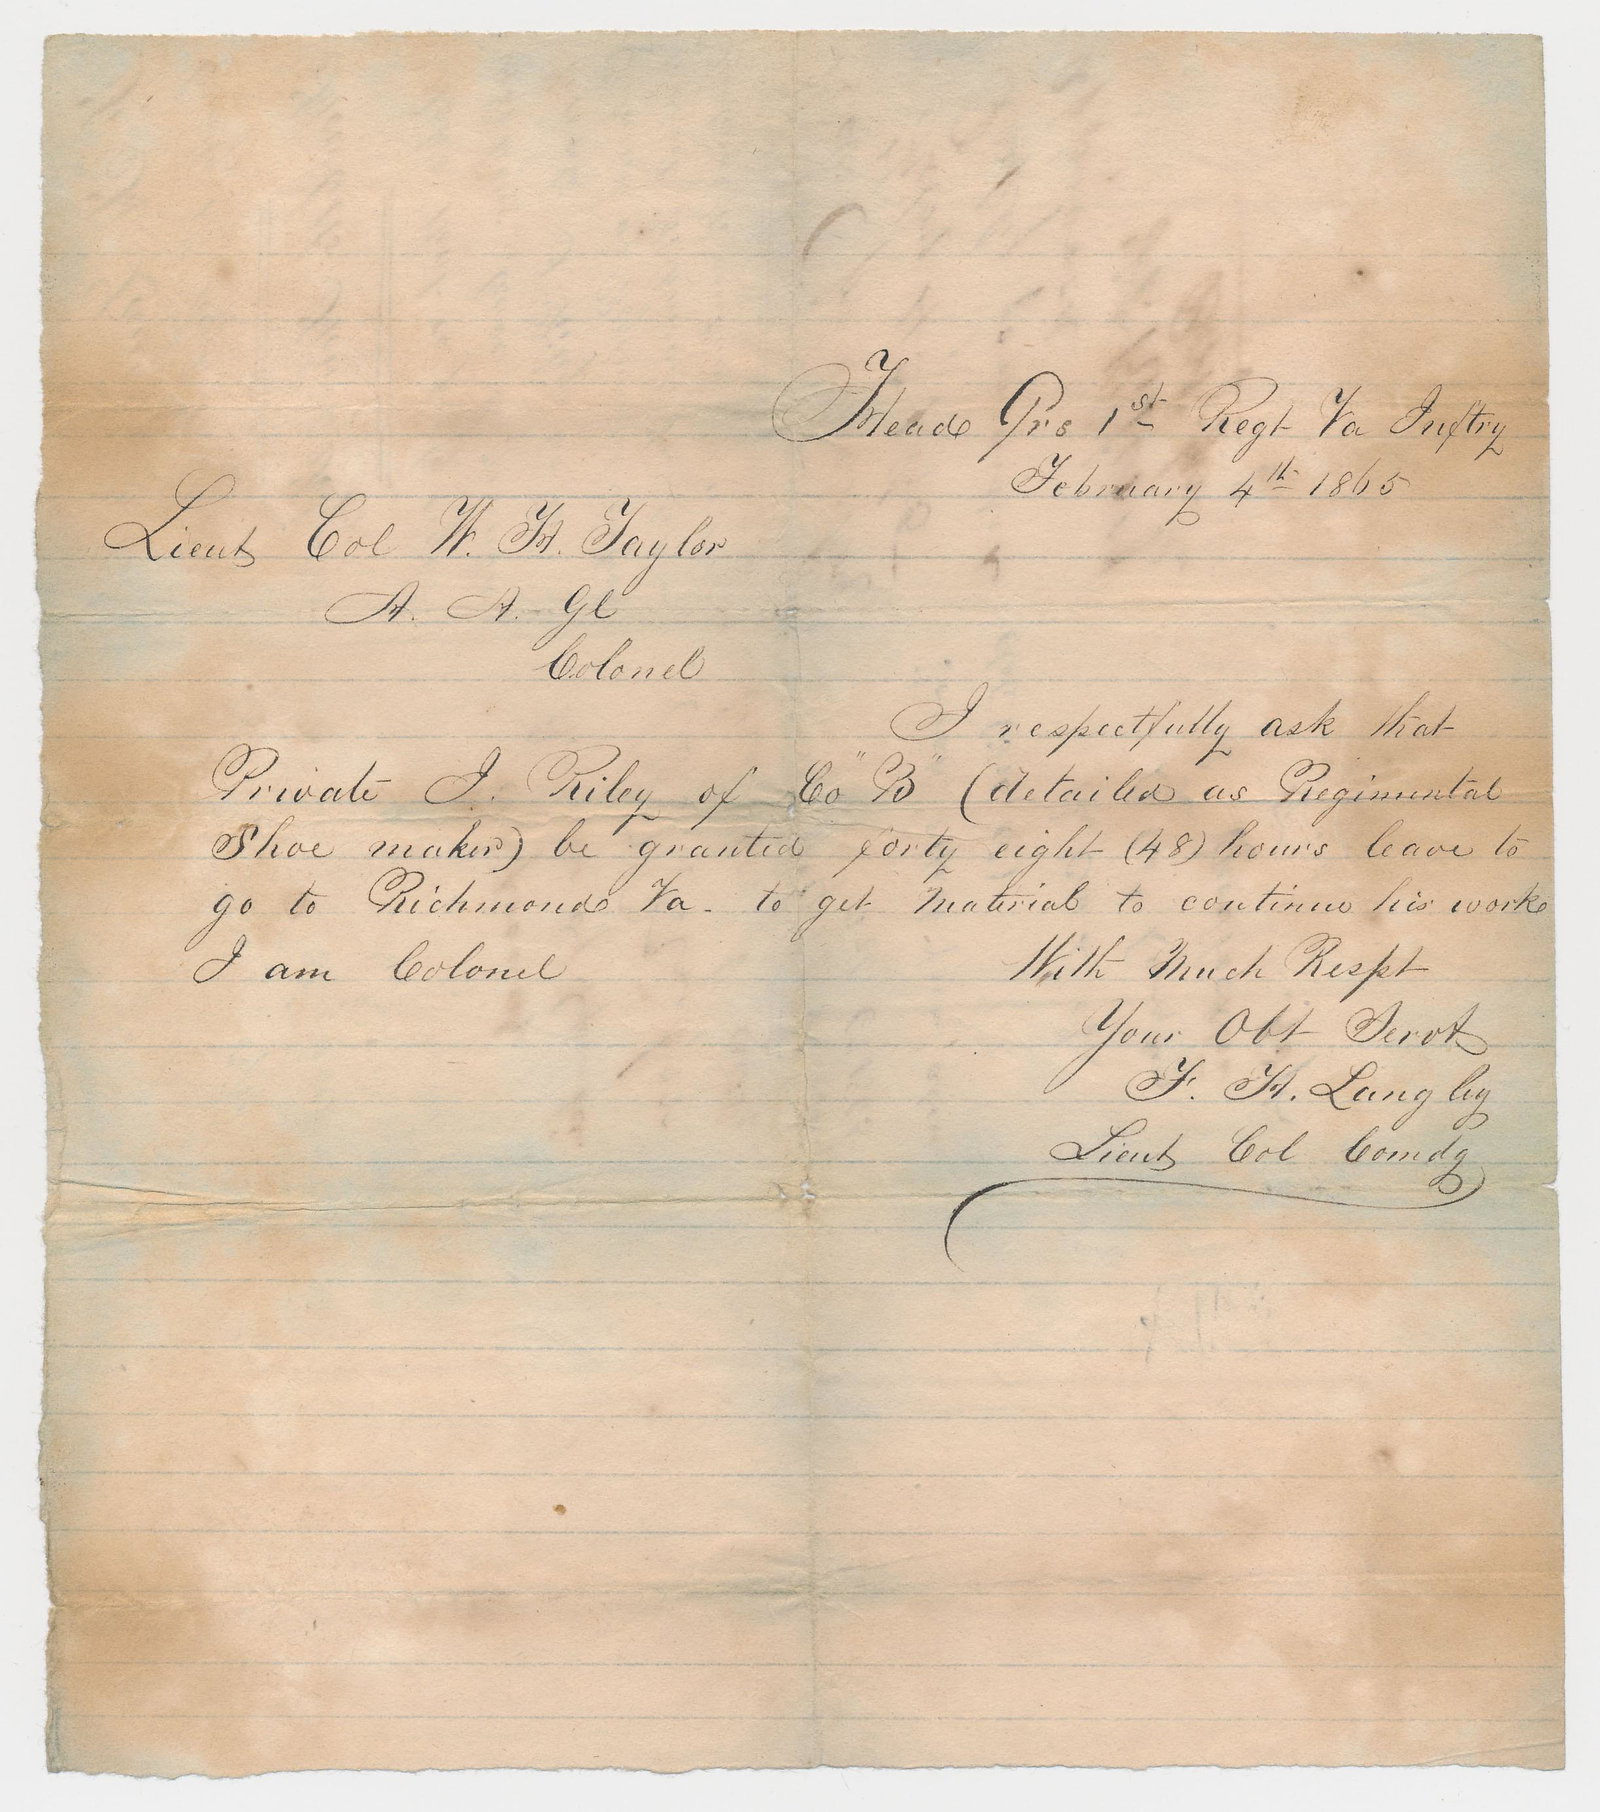 Head Qrs 1st Regt Va Inftry
February 4th 1865
Lieut Col W. H. Taylor
A. A. Gl
Colonel
I respectfully ask that
Private J. Riley of Co "B" (detailed as Regimental
Shoe maker) be granted forty eight (48) hours leave to
go to Richmond Va. to get material to continue his work
I am Colonel
With Much Respt
Your Obt Servt
F. H. Langley
Lieut Col Comdg